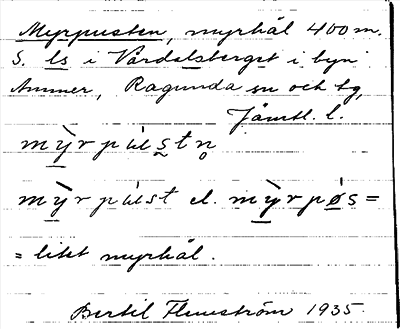 Myrpusten, myrhål 400 m.
S. ls i Vårdalsberget i byn
Ammer, Ragunda sn och tg,
Jämtl. l.
mỳrpùstn̥
mỳrpùst el. mỳrpøs =
= litet myrhål.
Bertil Flemström 1935.